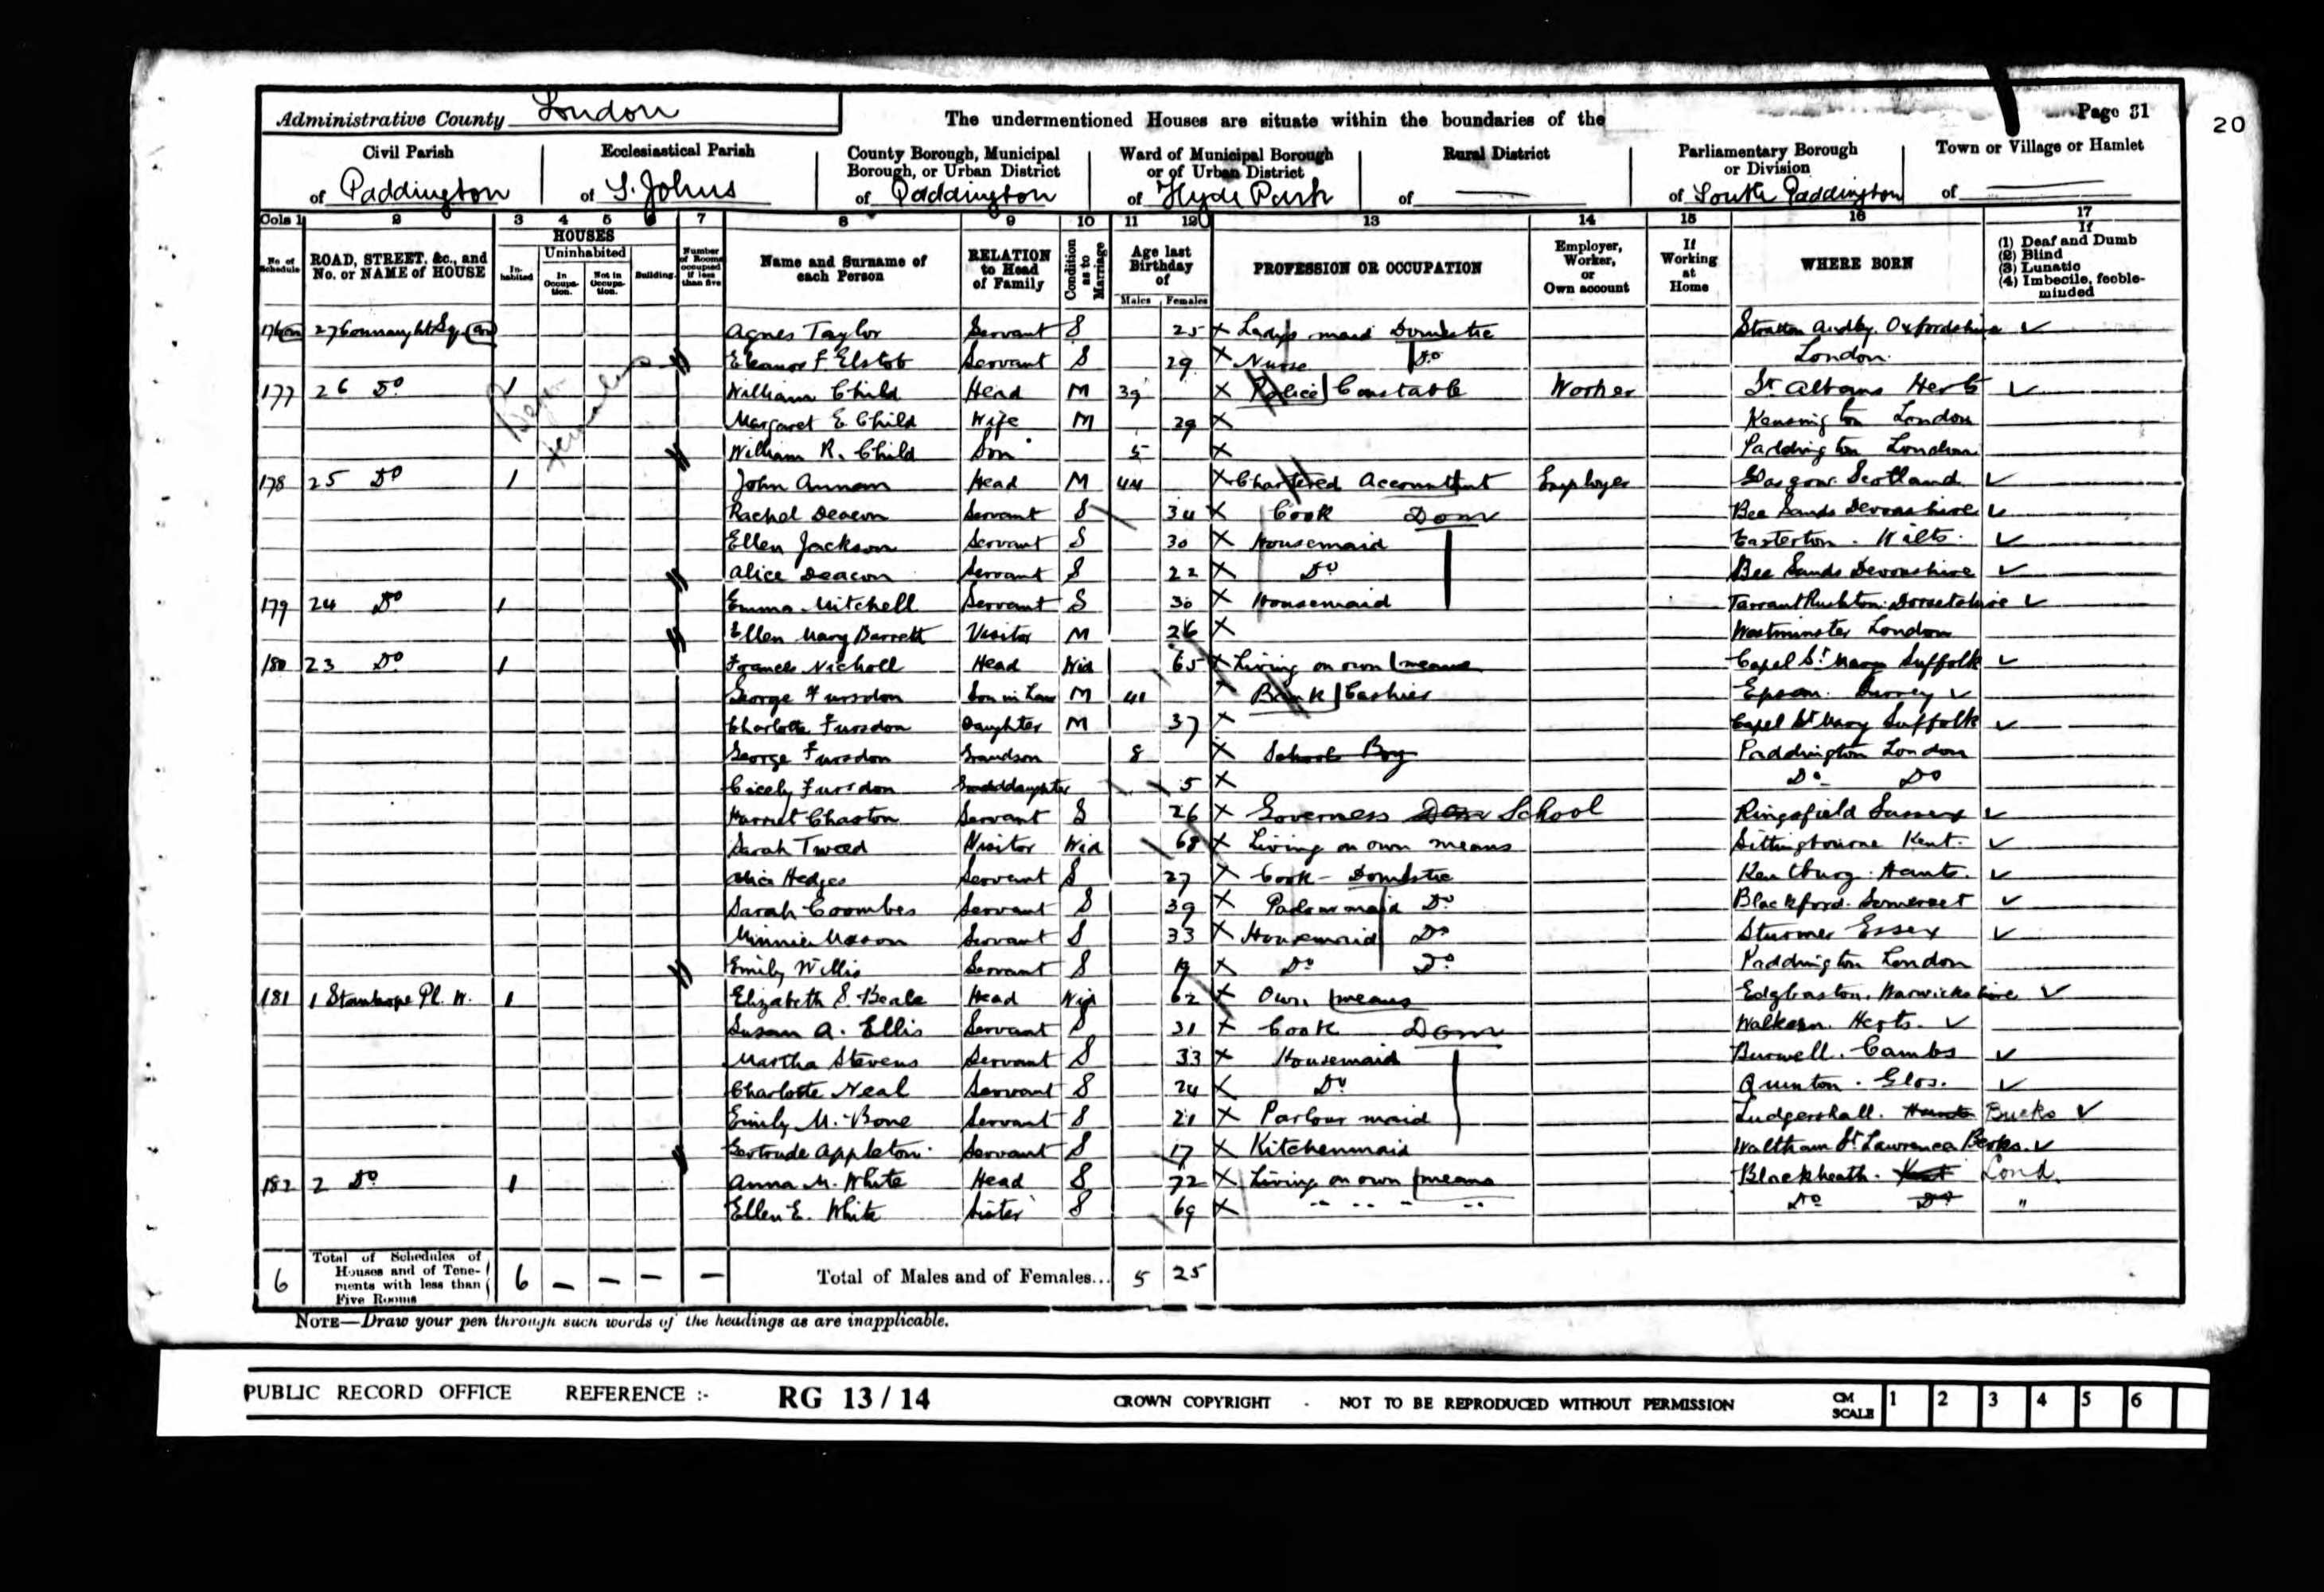 Administrative County London
The undermentioned Houses are situate within the boundaries of the
Page 31
20
Civil Parish of Paddington
Ecclesiastical Parish of S. Johns
County Borough, Municipal Borough, or Urban District of Paddington
Ward of Municipal Borough or of Urban District of Hyde Park
Rural District of
Parliamentary Borough or Division of South Paddington
Town or Village or Hamlet of
Cols 1 2 3 4 5 6 7 8 9 10 11 12 13 14 15 16 17
No. of Schedule
ROAD, STREET, &c., and No. or NAME of HOUSE
HOUSES
In-habited
Uninhabited
In Occupa-tion.
Not in Occupa-tion.
Building.
Number of Rooms occupied if less than five
Name and Surname of each Person
RELATION to Head of Family
Condition as to Marriage
Age last Birthday of
Males Females
PROFESSION OR OCCUPATION
Employer, Worker, or Own account
If Working at Home
WHERE BORN
If
(1) Deaf and Dumb
(2) Blind
(3) Lunatic
(4) Imbecile, feeble-minded
176 27 Connaught Sq Agnes Taylor Servant S 25 Ladys maid Domestic Stratton Audley Oxfordshire
Eleanor F Elstob Servant S 29 Nurse Do London
177 26 Do 1 William Child Head M 39 Police Constable Worker St Albans Herts
Margaret E Child Wife M 29 Kensington London
William R. Child Son 5 Paddington London
178 25 Do 1 John Annan Head M 44 Chartered Accountant Employer Glasgow Scotland
Rachel Deacon Servant S 34 Cook Dom Bee Sands Devonshire
Ellen Jackson Servant S 30 Housemaid Easterton. Wilts.
Alice Deacon Servant S 22 Do Bee Sands Devonshire
179 24 Do 1 Emma Mitchell Servant S 30 Housemaid Tarrant Rushton. Dorsetshire
Ellen Mary Barrett Visitor M 26 Westminster London
180 23 Do 1 Frances Nicholl Head Wid 65 Living on own means Capel St Mary Suffolk
George Fursdon Son in Law M 41 Bank Cashier Epsom. Surrey
Charlotte Fursdon Daughter M 37 Capel St Mary Suffolk
George Fursdon Grandson 8 School Boy Paddington London
Cicely Fursdon Granddaughter 5 Do Do
Harriet Chaston Servant S 26 Governess Dom School Ringsfield Sussex
Sarah Tweed Visitor Wid 68 Living on own means Sittingbourne Kent.
Alice Hedges Servant S 27 Cook - Domestic Hants.
Sarah Coombes Servant S 39 Parlourmaid Do Blackford. Somerset
Minnie Mason Servant S 33 Housemaid Do Sturmer Essex
Emily Willis Servant S 19 Do Do Paddington London
181 1 Stanhope Pl. W. 1 Elizabeth S Beale Head Wid 62 Own means Edgbaston. Warwickshire
Susan A. Ellis Servant S 31 Cook Dom Walkern. Herts.
Martha Stevens Servant S 33 Housemaid Burwell. Cambs
Charlotte Neal Servant S 24 Do Quinton. Glos.
Emily M. Bone Servant S 21 Parlour maid Ludgershall. Hants Bucks
Gertrude Appleton. Servant S 17 Kitchenmaid Waltham St Lawrence Berks.
182 2 Do 1 Anna M. White Head S 72 Living on own means Blackheath. Kent Lond.
Ellen E. White Sister S 69 " Do Do "
6 Total of Schedules of Houses and of Tene-ments with less than Five Rooms 6 — — — — Total of Males and of Females... 5 25
NOTE—Draw your pen through such words of the headings as are inapplicable.
PUBLIC RECORD OFFICE REFERENCE :- RG 13 / 14 CROWN COPYRIGHT - NOT TO BE REPRODUCED WITHOUT PERMISSION CM SCALE 1 2 3 4 5 6